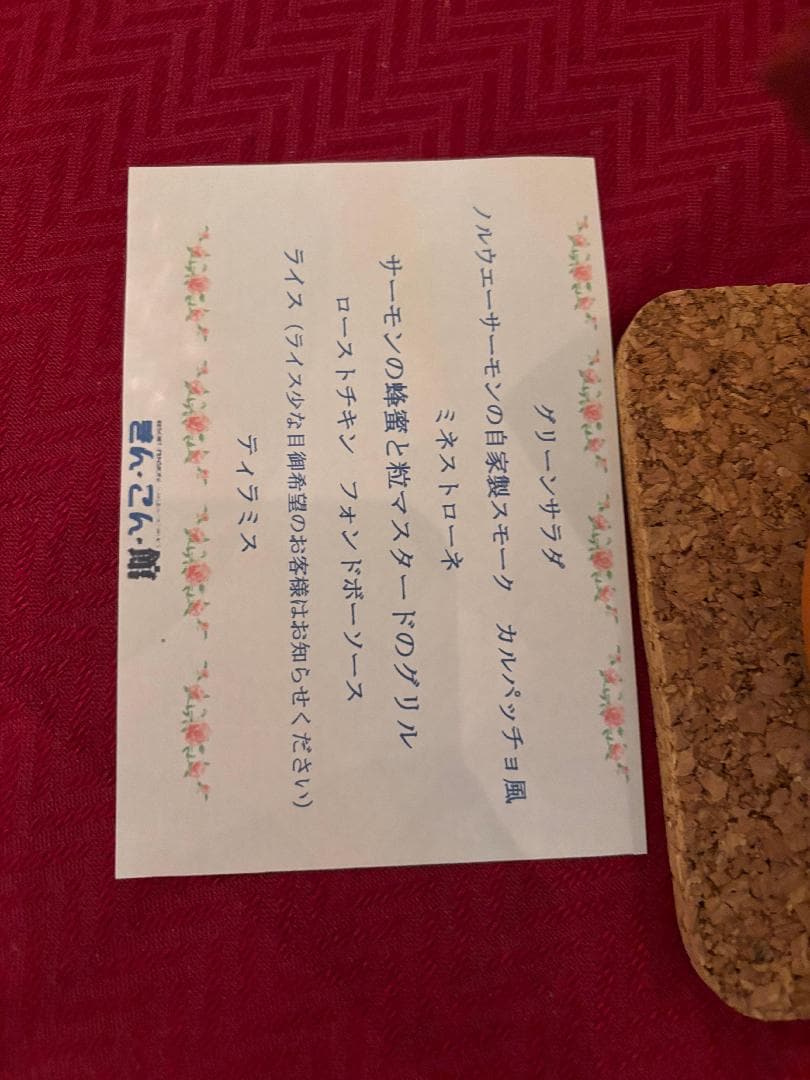 グリーンサラダ
ノルウエーサーモンの自家製スモーク　カルパッチョ風
ミネストローネ
サーモンの蜂蜜と粒マスタードのグリル
ローストチキン　フォンドボーソース
ライス（ライス少な目御希望のお客様はお知らせください）
ティラミス
きん・こん・館